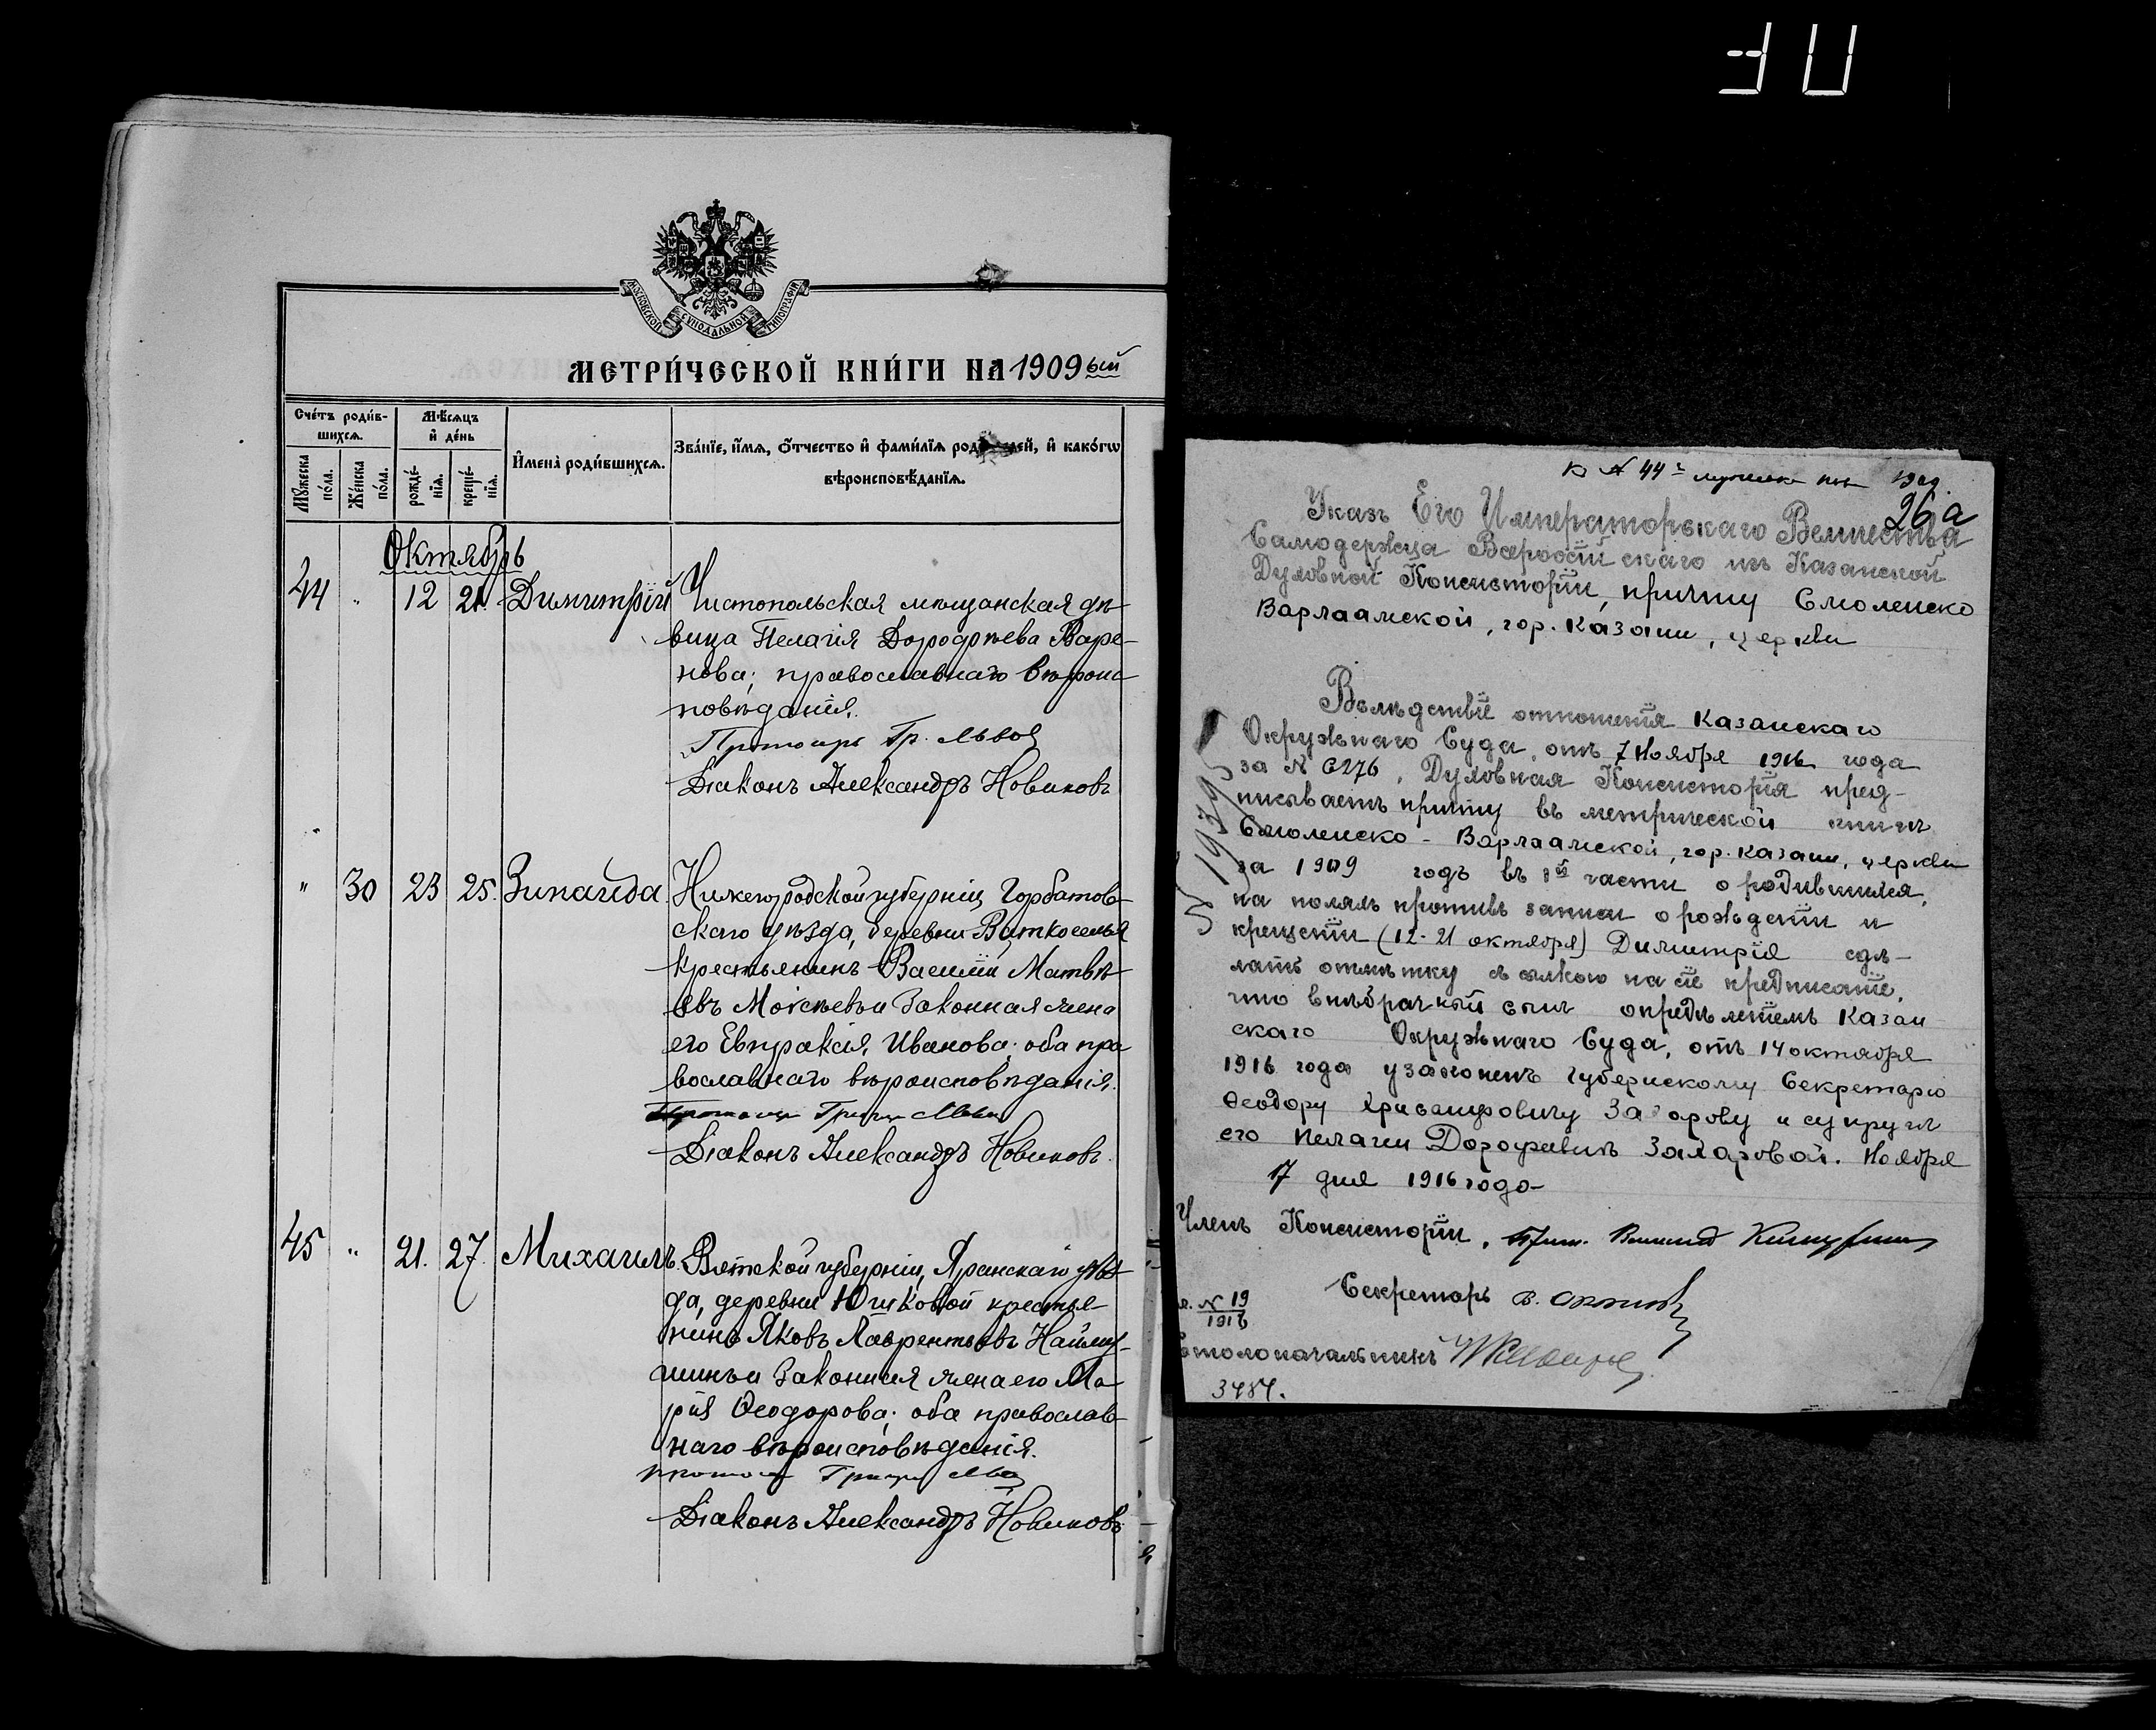 МОСКОВСКОЙ СѴНОДАЛЬНОЙ ТИПОГРАФІИ
МЕТРИ́ЧЕСКОЙ КНИ́ГИ НА 1909ый
Сче́тъ роди́в-
шихсѧ.
Мѣ́сѧцъ
и҆ де́нь
И҆мена̀ роди́вшихсѧ.
Зва́нїе, и҆́мѧ, ѻ҆́тчество и҆ фами́лїѧ роди́телей, и҆ како́гѡ
вѣроисповѣ́данїѧ.
Мꙋ́жеска
по́ла.
Же́нска
по́ла.
рожде́-
нїѧ.
креще́-
нїѧ.
Октябрь
44 " 12 21. Димитрій Чистопольская мѣщанская дѣ-
вица Пелагія Дорофѣева Варе-
нова; православнаго вѣроис-
повѣданія.
Протоіер. Гр. Львов
Діаконъ Александръ Новиковъ
" 30 23 25. Зинаида. Нижегородской губерніи, Горбатов-
скаго уѣзда, деревни
крестьянинъ Василій Матвѣ-
евъ Моісѣевъ и законная жена
его Евпраксія Иванова; оба пра-
вославнаго вѣроисповѣданія.
Львов
Діаконъ Александръ Новиковъ.
45 " 21. 27. Михаилъ. Вятской губерніи, Яранскаго уѣз-
да, деревни Юшковой крестья-
нинъ Яковъ Лаврентьевъ Наймуш-
шинъ и законная жена его Ма-
рія Ѳеодорова; оба православ-
наго вѣроисповѣданія.
Львов
Діаконъ Александръ Новиковъ
К № 44 мужска пол 1909.
26а
Указъ Его Императорскаго Величества
Самодержца Всероссійскаго изъ Казанской
Духовной Консисторіи, причту Смоленско
Варлаамской, гор. Казани, церкви
№ 19395
Вслѣдствіе отношенія Казанскаго
Окружнаго Суда, отъ 7 Ноября 1916 года
за № 6276, Духовная Консисторія пред-
писываетъ причту въ метрической книгѣ
Смоленско-Варлаамской, гор. Казани, церкви
за 1909 годъ въ 1й части о родившихся,
на поляхъ противъ записи о рожденіи и
крещеніи (12-21 октября) Димитрія сдѣ-
лать отмѣтку съ ссылкою на сіе предписаніе,
что внѣбрачный сынъ опредѣленіемъ Казан
скаго Окружнаго Суда, отъ 14 октября
1916 года узаконенъ Губернскому Секретарю
Ѳеодору Хрисанфовичу Захарову и супругѣ
его Пелагеи Дорофеевнѣ Захаровой. Ноября
17 дня 1916 года
Членъ Консисторіи,
Секретарь
№ 19
1916
Столоначальникъ
3484.